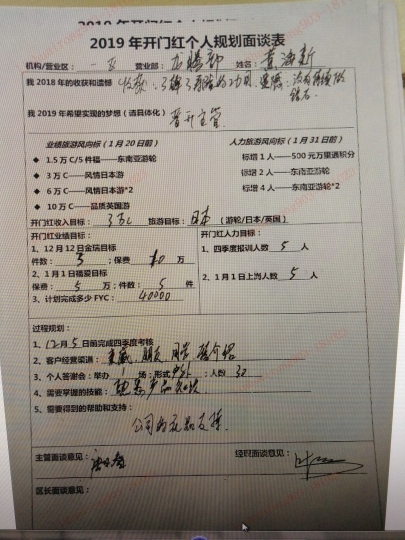 2019年开门红个人规划面谈表
机构/营业区: 一区 营业部: 龙腾部 姓名:
我2018年的收获和遗憾
我2019年希望实现的梦想(请具体化) 晋升主管
业绩旅游风向标(1月20日前) 人力旅游风向标(1月31日前)
◆ 1.5万C/5件福——东南亚游轮 标增1人——500元万里通积分
◆ 3万C——风情日本游 标增2人——东南亚游轮
◆ 6万C——风情日本游*2 标增4人——东南亚游轮*2
◆ 10万C——品质英国游
开门红收入目标: 3万C 旅游目标: 日本 (游轮/日本/英国)
开门红业绩目标: 开门红人力目标:
1、12月12日金瑞目标 1、四季度报训人数 5 人
件数: 3 ;保费 10 万
2、1月1日福爱目标 2、1月1日上岗人数 5 人
保费: 5 万;件数: 5 件
3、计划完成多少FYC: 40000
过程规划:
1、12月5日前完成四季度考核
2、客户经营渠道: 亲戚、朋友、同学、转介绍
3、个人答谢会:举办 1 场;形式 户外 ;人数 30
4、需要掌握的技能: 熟悉产品知识
5、需要得到的帮助和支持:
公司的礼品支持
主管面谈意见: 经理面谈意见:
区长面谈意见: